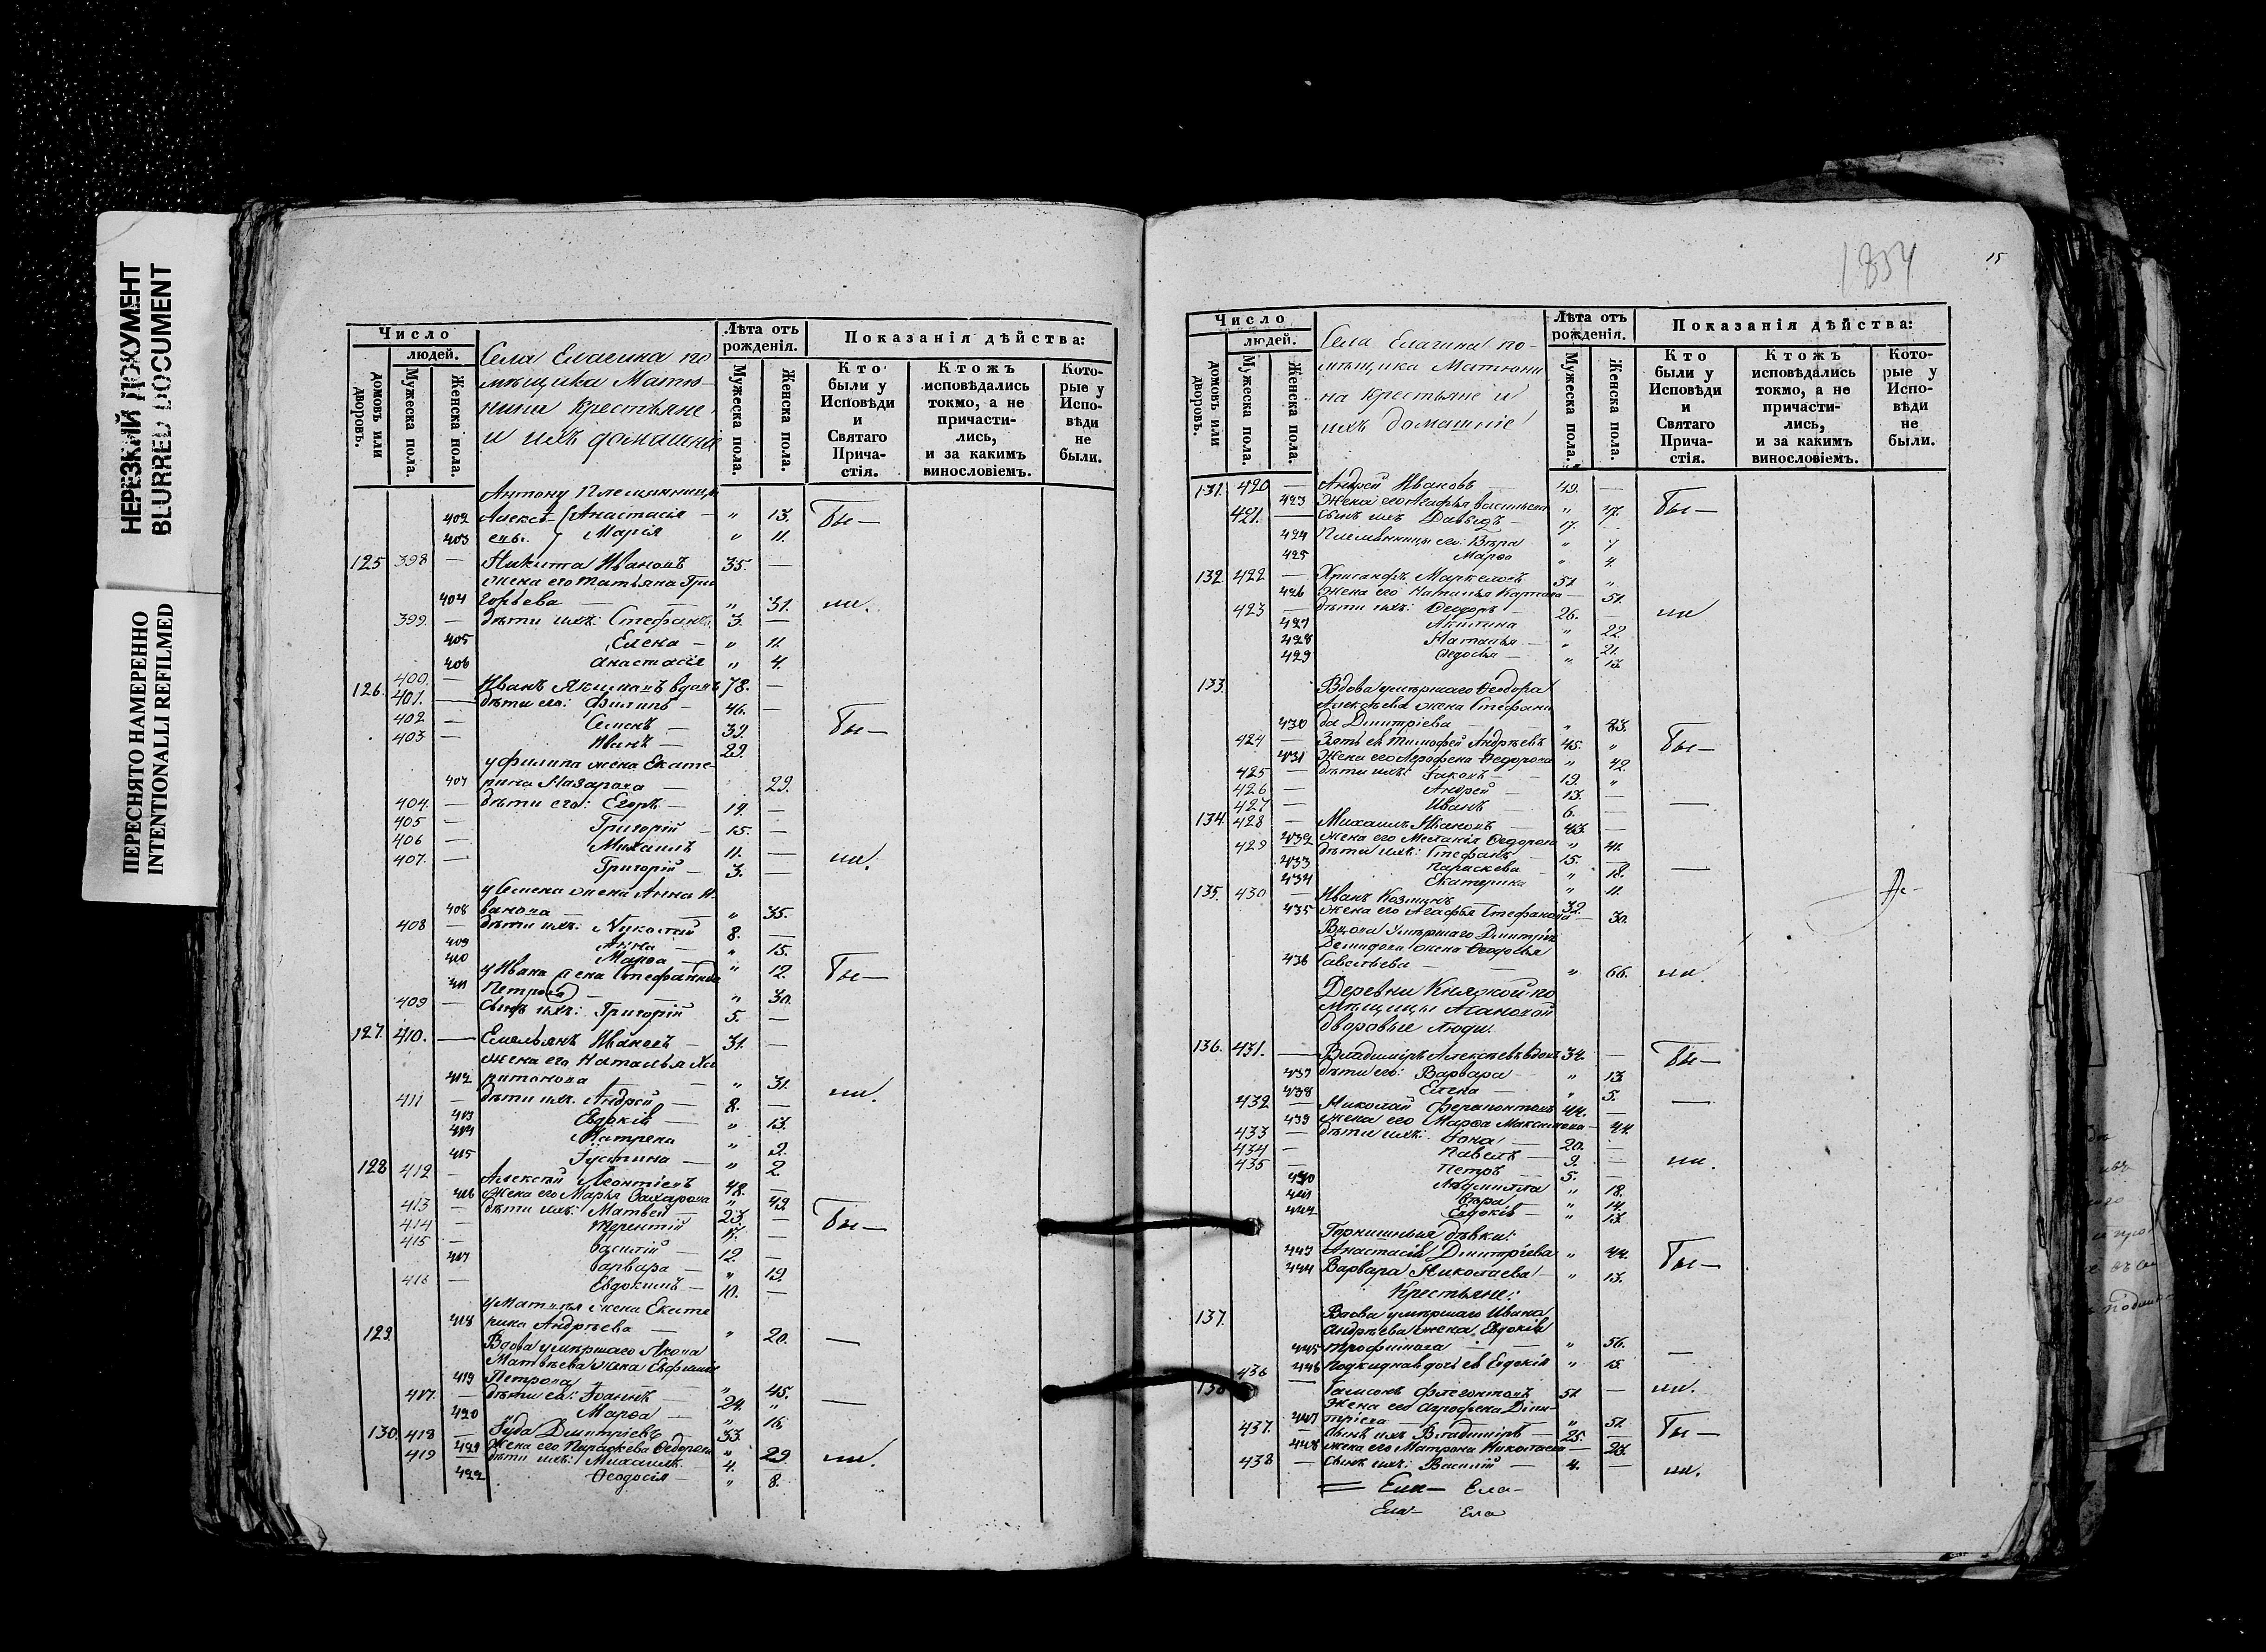 НЕРЕЗКИЙ ДОКУМЕНТ
BLURRED DOCUMENT
ПЕРЕСНЯТО НАМЕРЕННО
INTENTIONALLI REFILMED
Число
людей.
домовъ или дворовъ.
Мужеска пола.
Женска пола.
Села Елагина по
мѣщика Матю-
нина крестьяне
и ихъ домашніе
Лѣта отъ рожденія.
Мужеска пола.
Женска пола.
Показанія дѣйства:
Кто были у Исповѣди и Святаго Прича- стія.
Ктожъ исповѣдались токмо, а не причасти- лись, и за какимъ винословіемъ.
Кото- рые у Испо- вѣди не были.
Антону племянницы
402 Алексѣ- Анастасія — " 13. Бы—
403 евы. Марія " 11.
125 398 — Никита Ивановъ 35. —
жена его Татьяна Гри
404 горьева — " 31. ли.
399. — дѣти ихъ: Стефанъ 3. —
405 Елена — " 11.
406 Анастасія " 4.
126. 400. — Иванъ Якимовъ вдовъ 78. —
401. — дѣти его: Филипъ — 46. —
402 — Семенъ — 39. Бы—
403 — Иванъ — 29.
у Филипа жена Екате-
407 рина Назарова — 29.
404. — дѣти его: Егоръ — 19. —
405 — Григорій — 15. —
406 — Михаилъ 11. — ли.
407. — Григорій — 3. —
у Семена жена Анна И-
408 ванова — " 35.
408 — дѣти ихъ: Николай 8. —
409 Анна — " 15.
410 Марѳа — " 12. Бы—
у Ивана жена Стефанида
411 Петрова — " 30.
409 — сынъ ихъ: Григорій 5. —
127. 410. — Емельянъ Ивановъ — 31. —
жена его Наталья Ха
412 ритонова — " 31. ли.
411 — дѣти ихъ. Андрей — 8. —
413 Евдокія — " 13.
414 Матрена " 9.
415 Іустина — " 2
128 412 — Алексѣй Леонтіевъ 48. —
416 жена его Марья Захарова " 49.
413 — дѣти ихъ: Матвей — 23. — Бы—
414 — Терентій —
415 — Василій — 12. —
417 Варвара — " 19.
416 — Евдокимъ — 10. —
у Матвея жена Екате
418 рина Андреева — " 20. —
129. Вдова умершаго Якова
Матвѣева жена Евфимія
419 Петрова " 45.
417. — дѣти ея: Іоаннъ — 24. " —
420 Марѳа — " 16.
130. 418 — Іуда Димитріевъ 33.
421 жена его Параскева Ѳедорова " 29. ли.
419 — дѣти ихъ: Михаилъ 4.
422 Ѳеодосія — " 8.
1834
15
Число
людей.
домовъ или дворовъ.
Мужеска пола.
Женска пола.
Села Елагина по-
мѣщика Матюни
на крестьяне и
ихъ домашніе
Лѣта отъ рожденія.
Мужеска пола.
Женска пола.
Показанія дѣйства:
Кто были у Исповѣди и Святаго Прича- стія.
Ктожъ исповѣдались токмо, а не причасти- лись, и за какимъ винословіемъ.
Кото- рые у Испо- вѣди не были.
131. 420 — Андрей Ивановъ 49. —
423 жена его Агафья Васильева " 47. Бы—
421. — сынъ ихъ Давыдъ — 17. —
424 Племянницы его: Вѣра " 7
425 Марѳа " 4.
132. 422 — Хрисанфъ Маркеловъ 51 "
426 жена его Наталья Карпова — 51.
423 — дѣти ихъ: Ѳеодоръ — 26. — ли
427 Акилина " 22.
428 Наталья — " 21.
429 Ѳедосья — " 13.
133. Вдова умершаго Ѳеодора
Алексѣева жена Стефани
430 да Димитріева — " 83.
424 — Зять ея Тимофей Андреевъ 45. " Бы—
431 жена его Агрофена Ѳедорова " 42.
425 — дѣти ихъ: Іаковъ — 19. "
426 — Андрей — 13. —
427 — Иванъ — 6. — —
134. 428 — Михаилъ Ивановъ 43. —
432 жена его Меланія Ѳедорова " 41.
429 дѣти ихъ: Стефанъ — 15. —
433 Параскева — " 18. —
434 Екатерина " 11.
135. 430 — Иванъ Козминъ 32.
435 жена его Агафья Стефанова — 30.
Вдова умершаго Димитрія
Демидова жена Ѳеодосья
436 Савельева — " 66. ли
Деревни Княжой по
мѣщицы Агановой
дворовые люди.
136. 431. — Владиміръ Алексѣевъ вдовъ 34 — Бы—
437 дѣти его: Варвара — " 13.
438 Елена — " 5.
432 — Николай Ферапонтовъ 44. — —
439 жена его Марѳа Максимова — 44.
433 — дѣти ихъ: Іона — 20. —
434 — Павелъ — 9. — ли.
435 — Петръ — 5. —
440 Людмилла " 18.
441 Вѣра — " 14.
442 Евдокія — " 13.
Горнишныя дѣвки:
443 Анастасія Димитріева " 44. Бы—
444 Варвара Николаева — " 13.
Крестьяне:
137. Вдова умершаго Ивана
Андрѣева жена Евдокія
445 Трофимова — " 56. —
446 подкидная дочь ея Евдокія " 15
138 436 — Самсонъ Флегонтовъ 51 — ли.
жена его Агрофена Дими-
447 тріева — " 51. Бы—
437. — сынъ ихъ Владиміръ — 25. —
448 жена его Матрона Николаева — 23.
438 — сынъ ихъ: Василій — 4. — ли.
Ела— Ела—
Ела— Ела